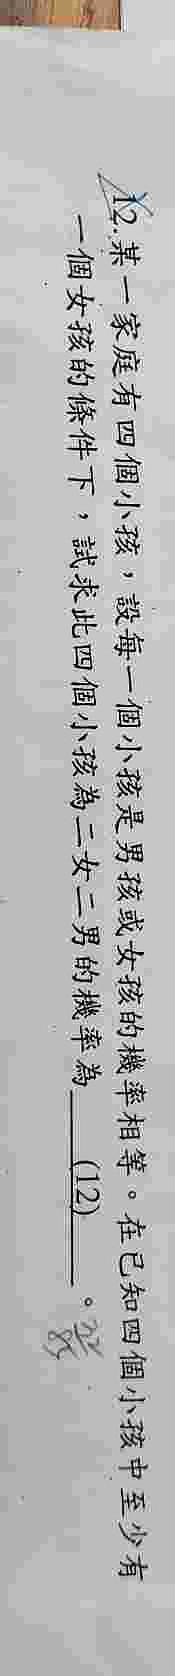 12.某一家庭有四個小孩，設每一個小孩是男孩或女孩的機率相等。在已知四個小孩中至少有
一個女孩的條件下，試求此四個小孩為二女二男的機率為 (12) 。